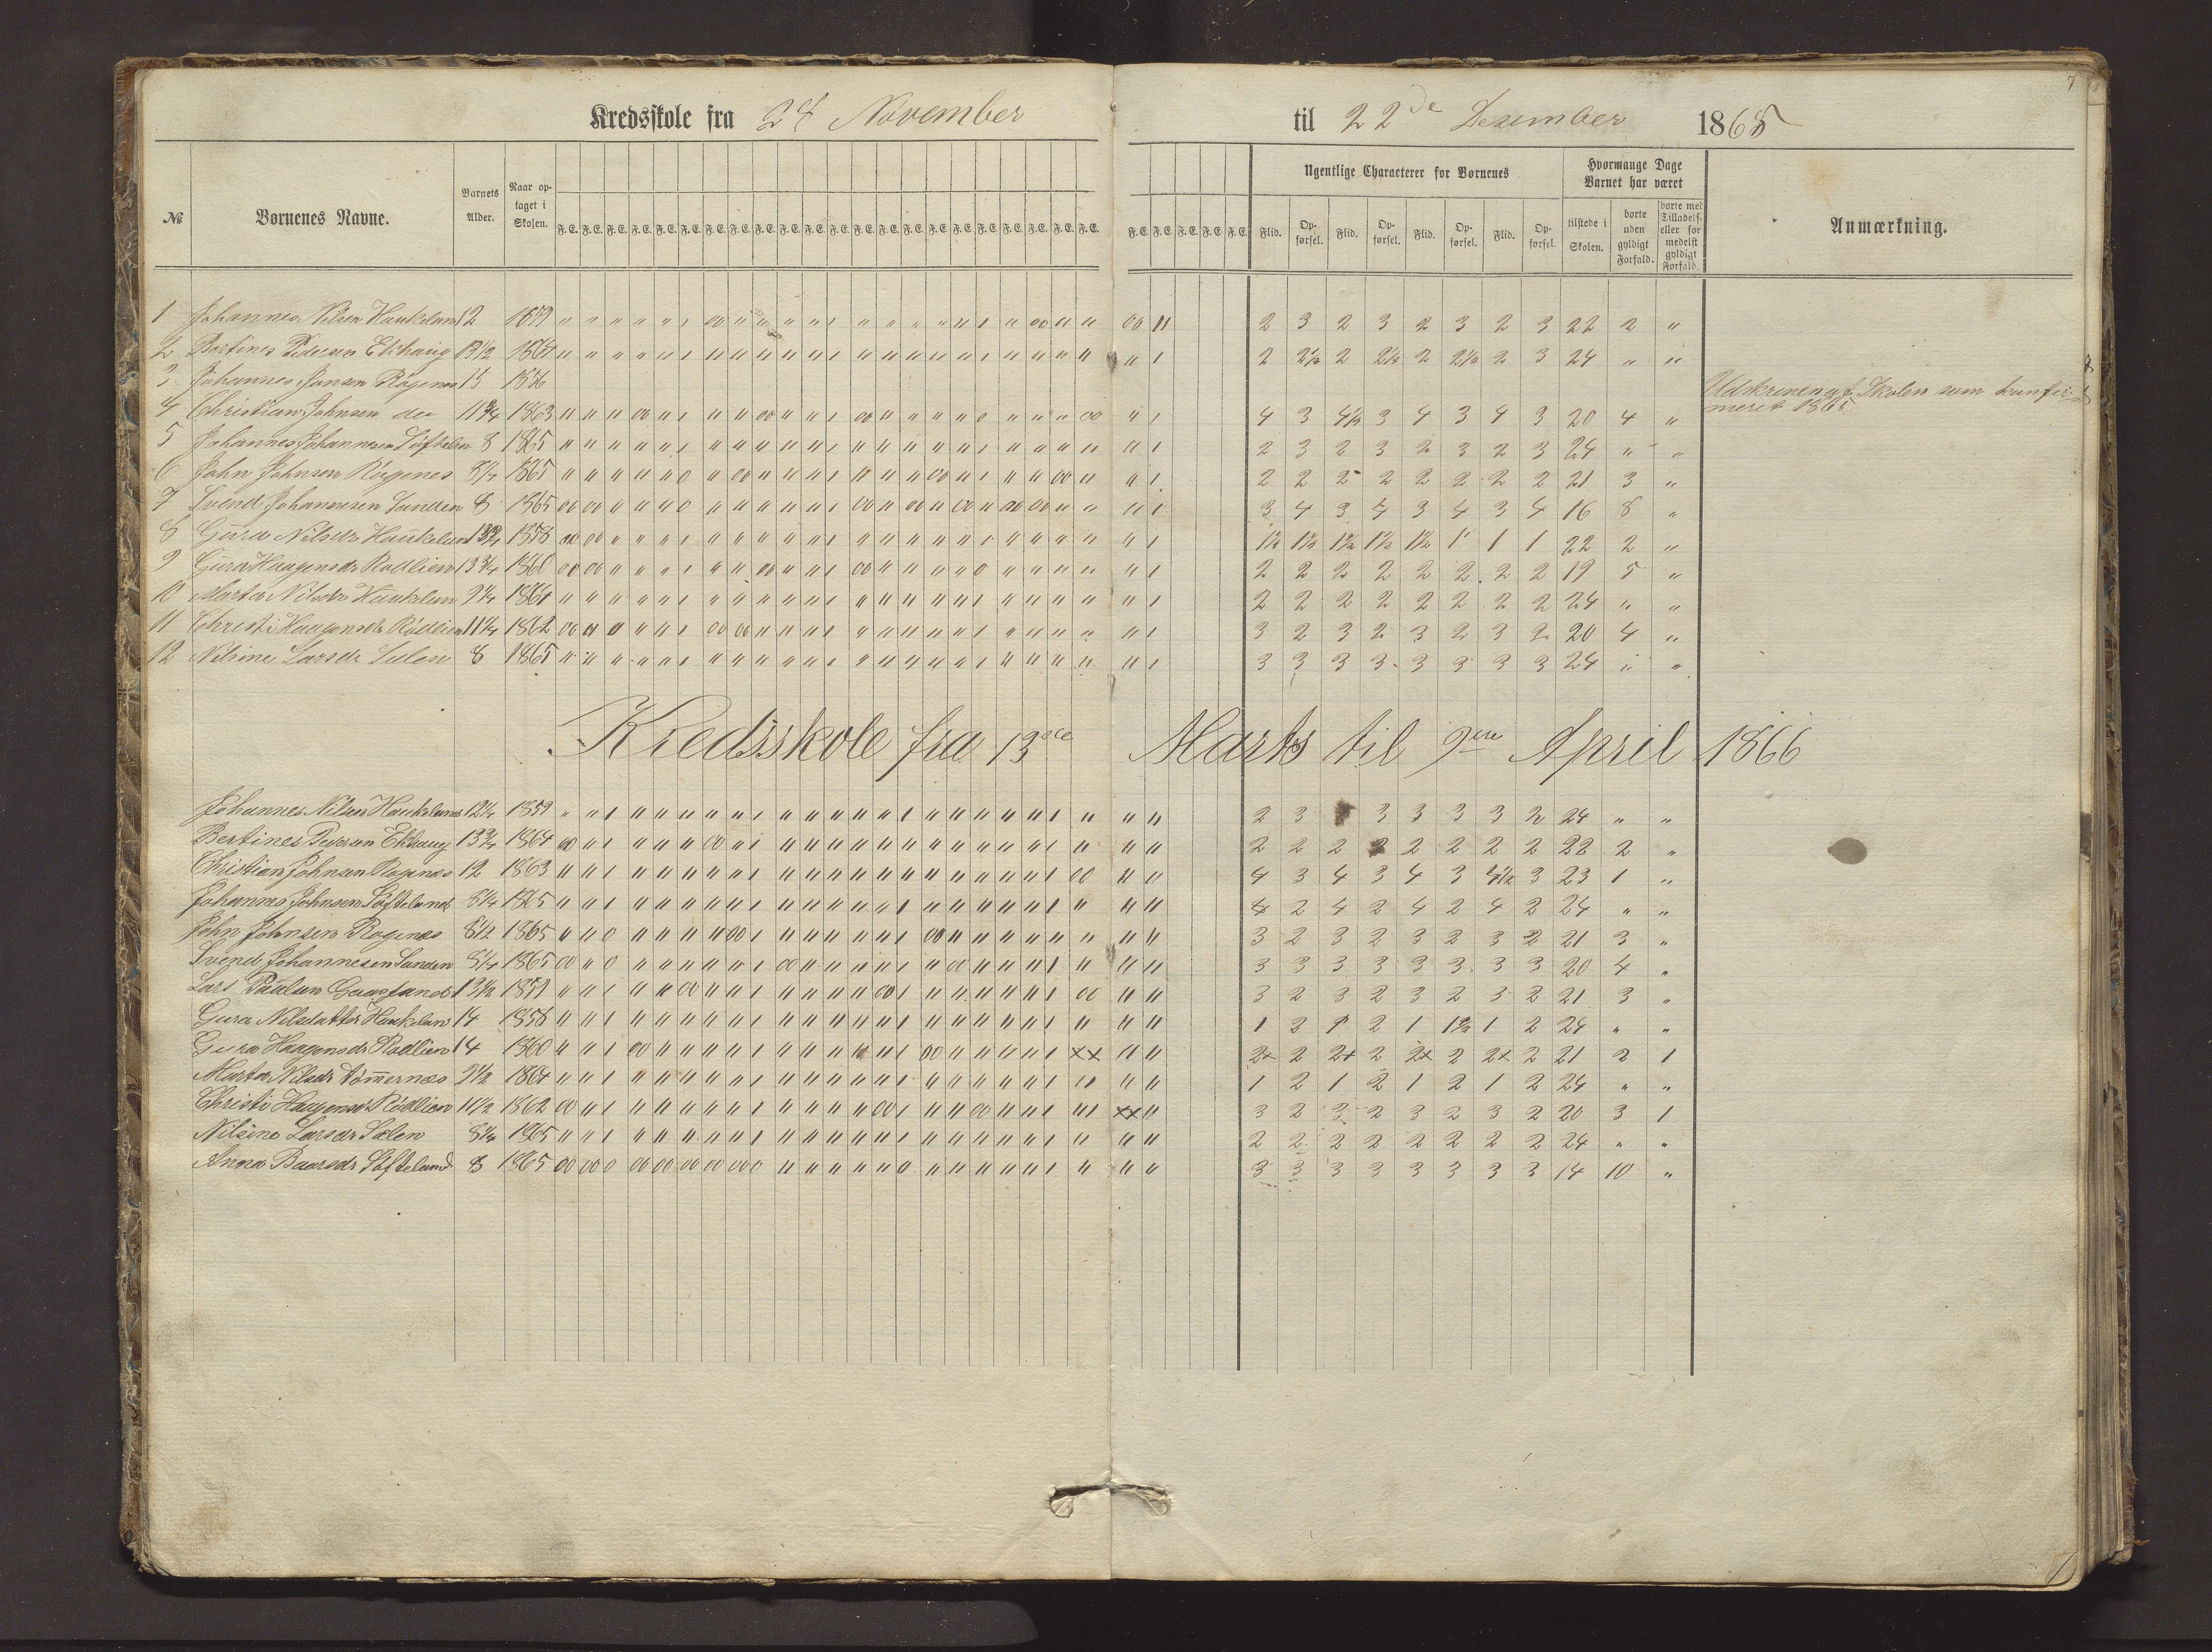 7
Kredsskole fra 24 November til 22de Desember 1865
№ Børnenes Navne. Barnets Alder. Naar optaget i Skolen. F. E. F. E. F. E. F. E. F. E. F. E. F. E. F. E. F. E. F. E. F. E. F. E. F. E. F. E. F. E. F. E. F. E. F. E. F. E. F. E. F. E. F. E. F. E. F. E. F. E. F. E. F. E.
Ugentlige Characterer for Børnenes
Hvormange Dage Barnet har været
Flid. Opførsel. Flid. Opførsel. Flid. Opførsel. Flid. Opførsel. tilstede i Skolen. borte uden gyldigt Forfald. borte med Tilladelse eller for medelst gyldigt Forfald.
Anmærkning.
1 Johannes Nilsen Hauklan 12 1859 2 3 2 3 2 3 2 3 22 2 "
2 Bertines Pedersen Ekhaug 13 1/2 1864 2 2 1/2 2 2 1/2 2 2 1/2 2 3 24 " "
3 Johannes Jansen Røgenes 15 1856 Udskreven af Skolen som konfir-
meret 1865
4 Christian Johnsen do 11 3/4 1863 4 3 4 1/2 3 4 3 4 3 20 4 "
5 Johannes Johannesen Søftelan 8 1865 2 3 2 3 2 3 2 3 24 " "
6 John Johnsen Røgenes 8 1/4 1865 2 2 2 2 2 2 2 2 21 3 "
7 Svend Johannesen Sanden 8 1865 3 4 3 4 3 4 3 4 16 8 "
8 Gura Nilsdr Hauklan 13 3/4 1858 1 1/2 1 1/2 1 1/2 1 1/2 1 1/2 1 1 1 22 2 "
9 Gura Haagensdr Rødlien 13 3/4 1860 2 2 2 2 2 2 2 2 19 5 "
10 Marta Nilsdr Hauklan 9 1/4 1864 2 2 2 2 2 2 2 2 24 " "
11 Christi Haagensdr Rødlien 11 1/4 1862 3 2 3 2 3 2 3 2 20 4 "
12 Nilsine Larsdr Sælen 8 1865 3 3 3 3 3 3 3 3 24 " "
Kredsskole fra 13de Marts til 9de April 1866
Johannes Nilsen Haukeland 12 1/4 1859 2 3 3 3 3 3 2 24 " "
Bertines Pedersen Ekhaug 13 3/4 1864 2 2 2 2 2 2 2 2 22 2 "
Christian Johnsen Røgenes 12 1863 4 3 4 3 4 3 4 1/2 3 23 1 "
Johannes Johnsen Søfteland 8 1/4 1865 4 2 4 2 4 2 4 2 24 " "
John Johnsen Røgenes 8 1/2 1865 3 2 3 2 3 2 3 2 21 3 "
Svend Johannesen Sanden 8 1/4 1865 3 3 3 3 3 3 3 3 20 4 "
Lars Paulsen 13 1/2 1859 3 2 3 2 3 2 3 2 21 3 "
Gura Nilsdatter Hauklan 14 1858 1 2 1 2 1 1 1/2 1 2 24 " "
Gura Haagensdr Rødlien 14 1860 2+ 2 2+ 2 2+ 2 2+ 2 21 2 1
Marta Nilsdr Tømmernes 9 1/2 1864 1 2 1 2 1 2 1 2 24 " "
Christi Haagensdr Rødlien 11 1/2 1862 3 2 3 2 3 2 3 2 20 3 1
Nilsine Larsdr Sælen 8 1/4 1865 2 2 2 2 2 2 2 2 24 " "
Anna Baarsdr Søfteland 8 1865 3 3 3 3 3 3 3 3 14 10 "